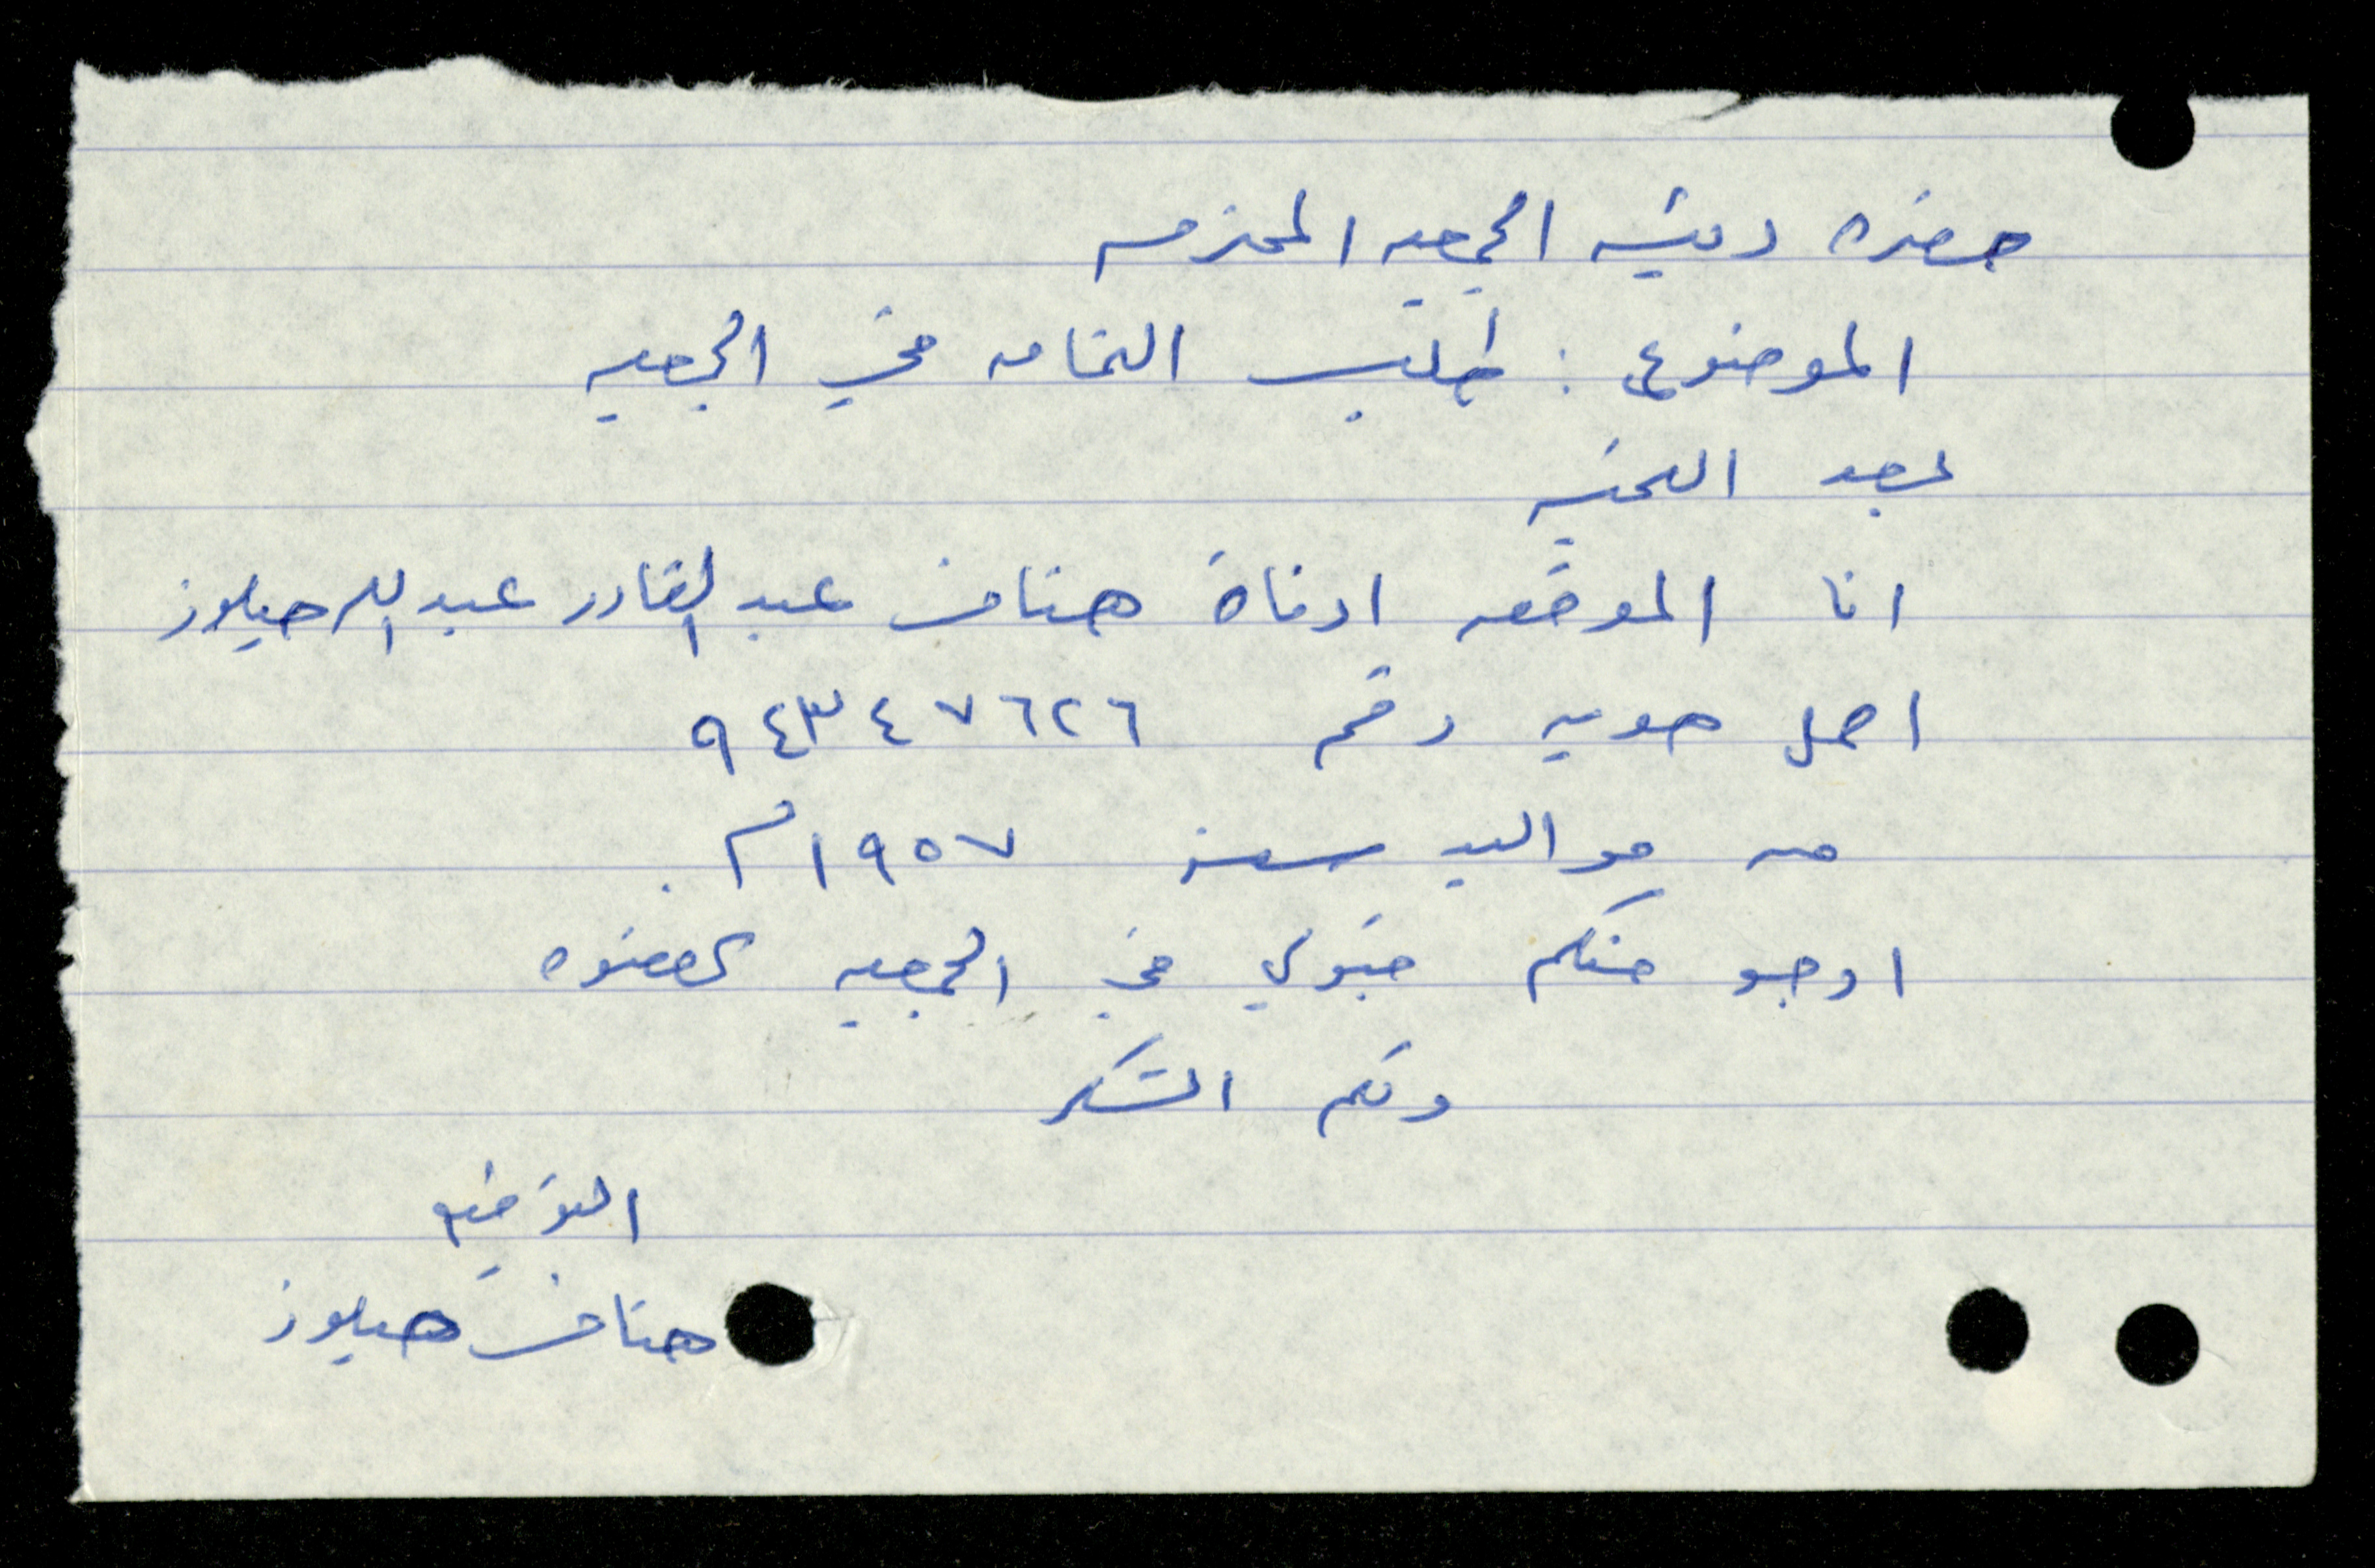 حضره رئيسه الجمعيه المحترمه
الموضوع : طلب انتمائه في الجمعيه
بعد التحيه
انا الموقعه ادناه هناف عبد القادر عبد الله حيلوز
احمل هويه رقم ٩٤٣٤٧٦٢٦
من مواليد سنه ١٩٥٧م.
ارجو منكم قبولي في الجمعيه كعضوه
ولكم الشكر
التوقيع
هناف حيلوز